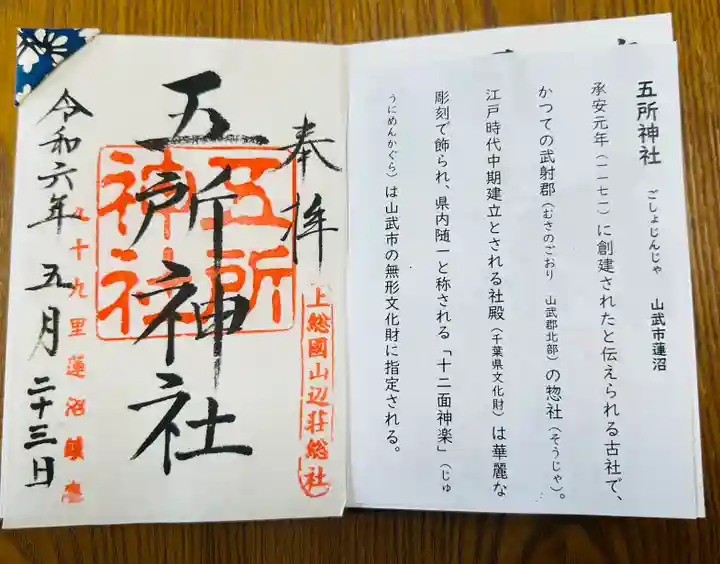 五所神社 ごしょじんじゃ 山武市蓮沼
承安元年(一一七一)に創建されたと伝えられる古社で、
かつての武射郡(むさのごおり 山武郡北部)の惣社(そうじゃ)。
江戸時代中期建立とされる社殿(千葉県文化財)は華麗な
彫刻で飾られ、県内随一と称される「十二面神楽」(じゅ
うにめんかぐら)は山武市の無形文化財に指定される。
奉拝
上総國山辺荘総社
五所神社
五所
神社
九十九里蓮沼鎮
令和六年五月二十三日